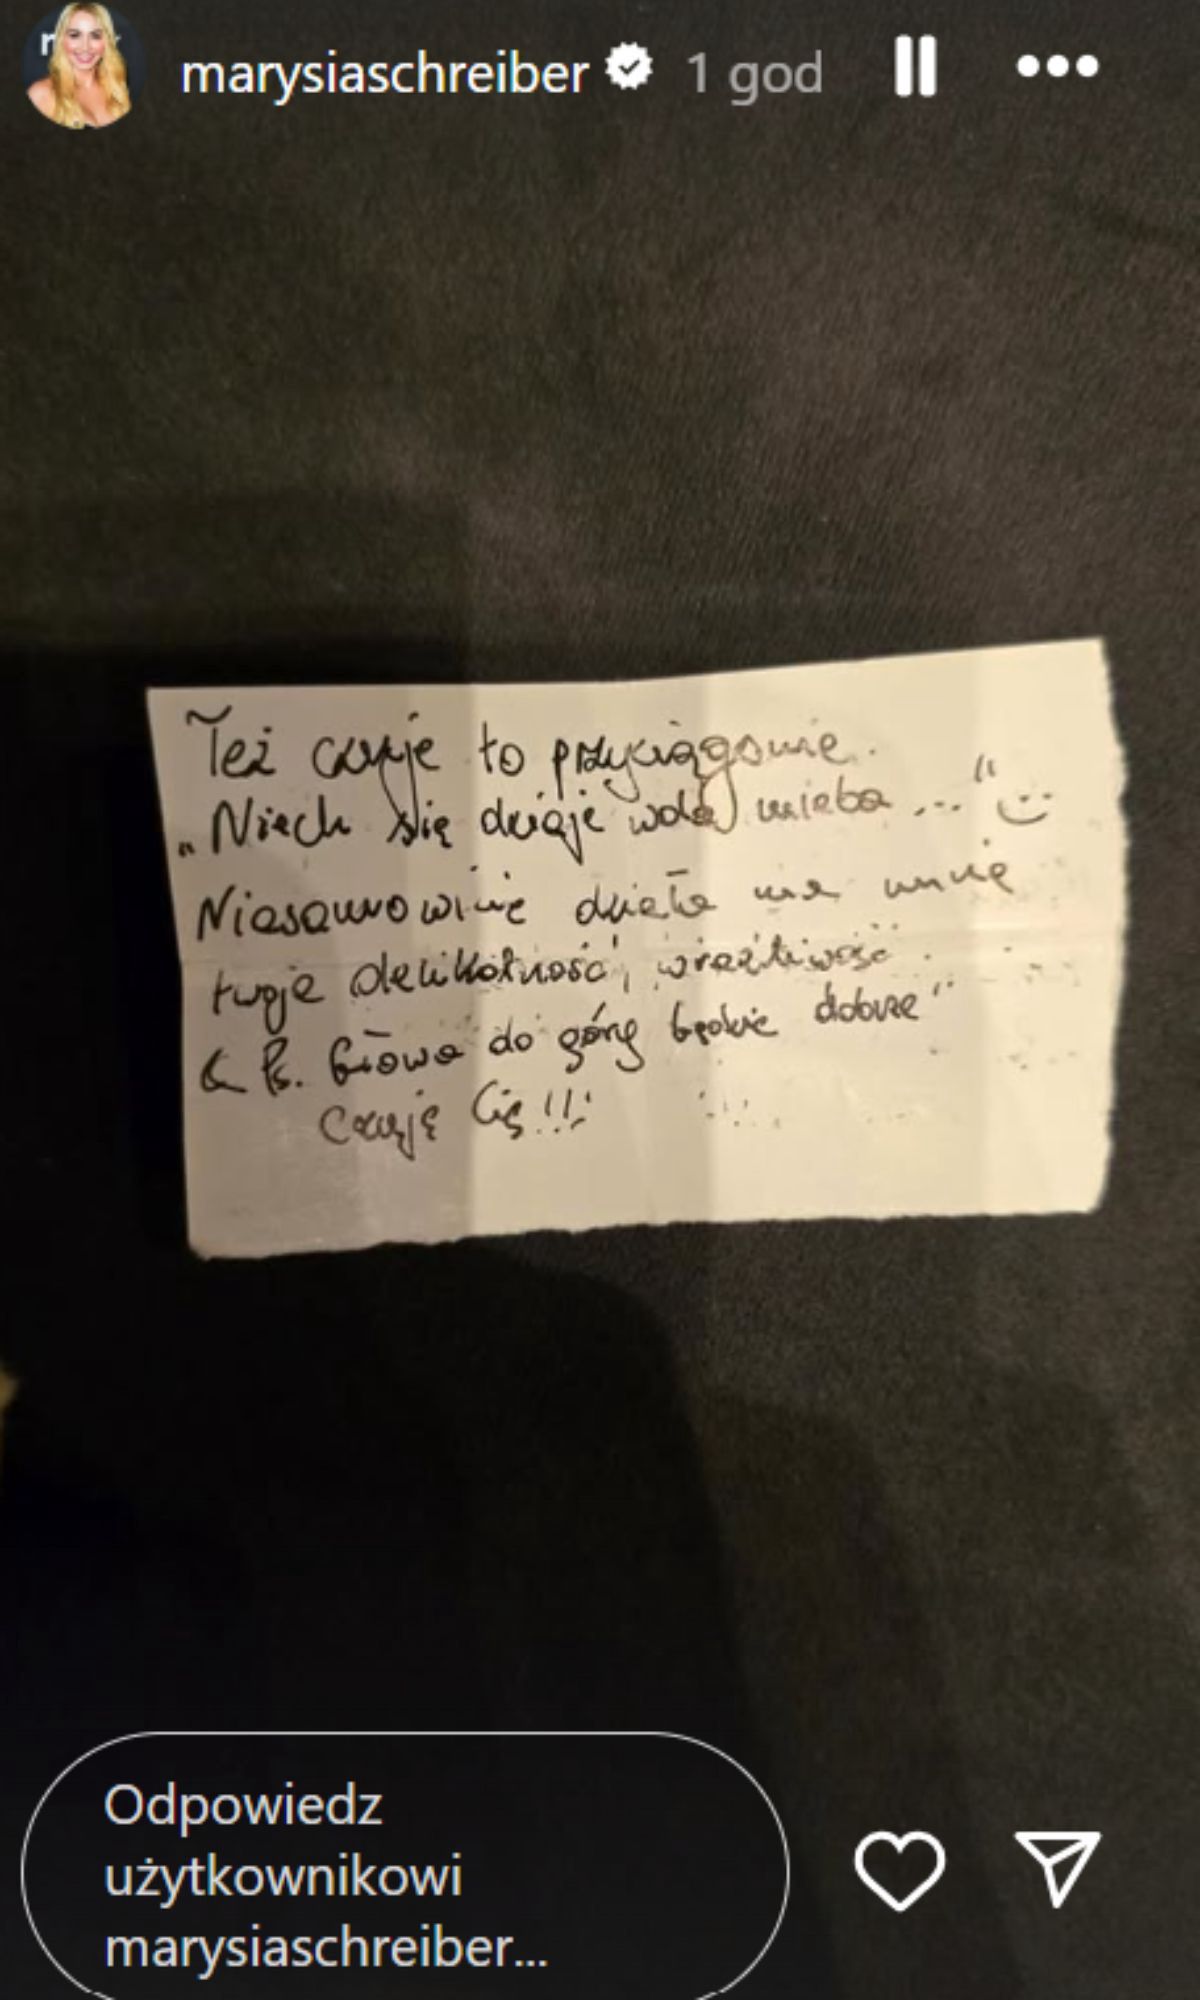 marysiaschreiber 1 god
Też czuje to przyciąganie.
„Niech się dzieje wola nieba ..." 
Niesamowicie działa na mnie
twoje delikatność, wrażliwość.
Ps. Głowa do góry będzie dobrze"
Czuję Cię!!!
Odpowiedz
użytkownikowi
marysiaschreiber...